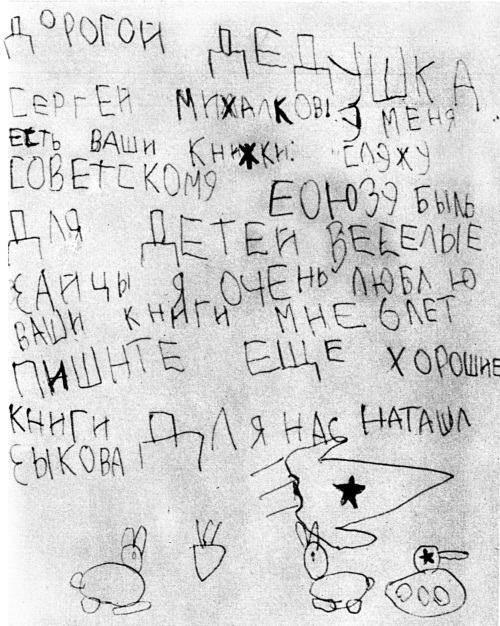 ДОРОГОЙ ДЕДУШКА
СЕРГЕЙ МИХАЛКОВ! У МЕНЯ
ЕСТЬ ВАШИ КНИЖКИ: "СЛУЖУ
СОВЕТСКОМУ СОЮЗУ БЫЛЬ
ДЛЯ ДЕТЕЙ ВЕСЕЛЫЕ
ЗАЙЦЫ Я ОЧЕНЬ ЛЮБЛЮ
ВАШИ КНИГИ МНЕ 6 ЛЕТ
ПИШИТЕ ЕЩЕ ХОРОШИЕ
КНИГИ ДЛЯ НАС НАТАША
ЗЫКОВА